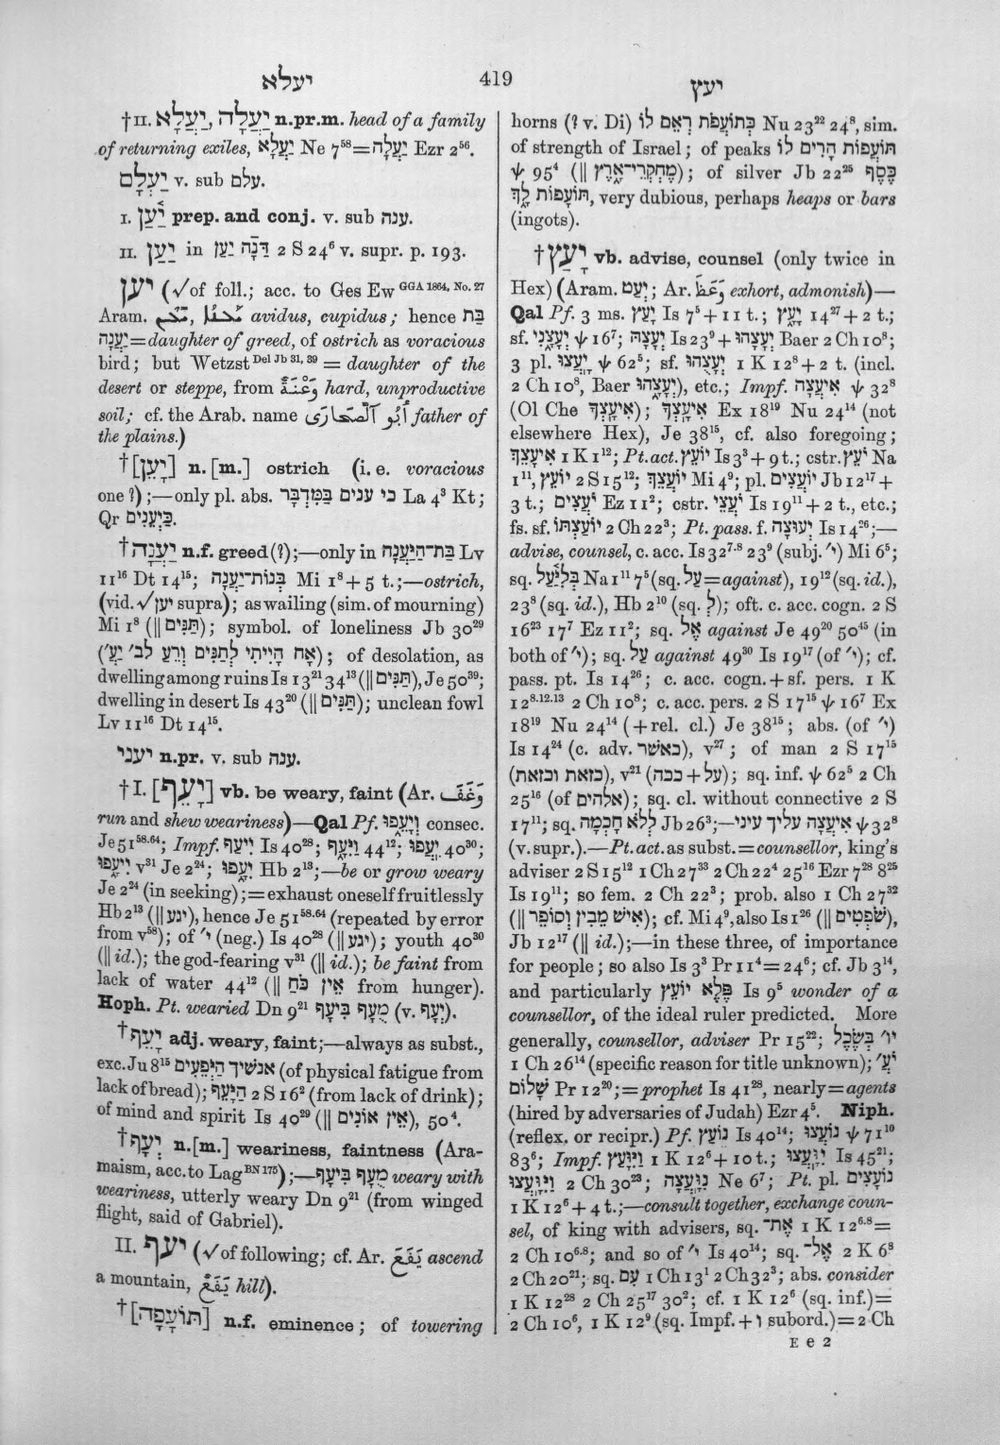 יעלא
419
יעץ
†II. יַעֲלָה, יַעֲלָא n.pr.m. head of a family
of returning exiles, יַעֲלָא Ne 7⁵⁸=יַעֲלָה Ezr 2⁵⁶.
יַעְלָם v. sub עלם.
I. יַ֫עַן prep. and conj. v. sub ענה.
II. יַעַן in דָּנָה יַעַן 2 S 24⁶ v. supr. p. 193.
יען (√of foll.; acc. to Ges Ew GGA 1864, No. 27
Aram. avidus, cupidus; hence בַּת
יַעֲנָה=daughter of greed, of ostrich as voracious
bird; but Wetzst Del Jb 31, 39 = daughter of the
desert or steppe, from وَعْنَةٌ hard, unproductive
soil; cf. the Arab. name أَبُو ٱلصَّحَارَى father of
the plains.)
†[יָעֵן] n.[m.] ostrich (i.e. voracious
one?);—only pl. abs. כי ענים בַּמִּדְבָּר La 4³ Kt;
Qr כַּיְעֵנִים.
†יַעֲנָה n.f. greed(?);—only in בַּת־הַיַּעֲנָה Lv
11¹⁶ Dt 14¹⁵; בְּנוֹת־יַעֲנָה Mi 1⁸+5 t.;—ostrich,
(vid.√יען supra); as wailing (sim. of mourning)
Mi 1⁸ (‖תַּנִּים); symbol. of loneliness Jb 30²⁹
(אָח הָיִיתִי לְתַנִּים וְרֵעַ לב׳ יַע׳); of desolation, as
dwelling among ruins Is 13²¹ 34¹³ (‖תַּנִּים), Je 50³⁹;
dwelling in desert Is 43²⁰ (‖תַּנִּים); unclean fowl
Lv 11¹⁶ Dt 14¹⁵.
יעני n.pr. v. sub ענה.
†I. [יָעֵף] vb. be weary, faint (Ar. وَغَفَ
run and shew weariness)—Qal Pf. וְיָעֵפוּ consec.
Je 51⁵⁸·⁶⁴; Impf. יִיעַף Is 40²⁸; וַיִּיעָף 44¹²; יִעֲפוּ 40³⁰;
יִיעָפוּ v³¹ Je 2²⁴; יִעָפוּ Hb 2¹³;—be or grow weary
Je 2²⁴ (in seeking);=exhaust oneself fruitlessly
Hb 2¹³ (‖יגע), hence Je 51⁵⁸·⁶⁴ (repeated by error
from v⁵⁸); of י׳ (neg.) Is 40²⁸ (‖יגע); youth 40³⁰
(‖id.); the god-fearing v³¹ (‖id.); be faint from
lack of water 44¹² (‖אֵין כֹּחַ from hunger).
Hoph. Pt. wearied Dn 9²¹ מֻעָף בִּיעָף (v. יְעָף).
†יָעֵף adj. weary, faint;—always as subst.,
exc. Ju 8¹⁵ אנשיך הַיְּעֵפִים (of physical fatigue from
lack of bread); הַיָּעֵף 2 S 16² (from lack of drink);
of mind and spirit Is 40²⁹ (‖אֵין אוֹנִים), 50⁴.
†יְעָף n.[m.] weariness, faintness (Ara-
maism, acc. to Lag BN 175);—מֻעָף בִּיעָף weary with
weariness, utterly weary Dn 9²¹ (from winged
flight, said of Gabriel).
II. יעף (√of following; cf. Ar. يَفَعَ ascend
a mountain, يَفَعٌ hill).
†[תּוֹעָפָה] n.f. eminence; of towering
horns (? v. Di) כְּתוֹעֲפֹת רְאֵם לוֹ Nu 23²² 24⁸, sim.
of strength of Israel; of peaks תּוֹעֲפוֹת הָרִים לוֹ
ψ 95⁴ (‖מֶחְקְרֵי־אָרֶץ); of silver Jb 22²⁵ כֶּסֶף
תּוֹעָפוֹת לָךְ, very dubious, perhaps heaps or bars
(ingots).
†יָעַץ vb. advise, counsel (only twice in
Hex) (Aram. יְעַט; Ar. وَعَظَ exhort, admonish)—
Qal Pf. 3 ms. יָעַץ Is 7⁵+11 t.; יָעָץ 14²⁷+2 t.;
sf. יְעָצָנִי ψ 16⁷; יְעָצָהּ Is 23⁹+יְעָצָהוּ Baer 2 Ch 10⁸;
3 pl. יָעֲצוּ ψ 62⁵; sf. יְעָצֻהוּ 1 K 12⁸+2 t. (incl.
2 Ch 10⁸, Baer יְעָצָהוּ), etc.; Impf. אִיעֲצָה ψ 32⁸
(Ol Che אִיעָצְךָ); אִיעָצְךָ Ex 18¹⁹ Nu 24¹⁴ (not
elsewhere Hex), Je 38¹⁵, cf. also foregoing;
אִיעָצֵךְ 1 K 1¹²; Pt. act. יוֹעֵץ Is 3³+9 t.; cstr. יֹעֵץ Na
1¹¹, יוֹעֵץ 2 S 15¹²; יוֹעֲצֵךְ Mi 4⁹; pl. יוֹעֲצִים Jb 12¹⁷+
3 t.; יֹעֲצִים Ez 11²; cstr. יֹעֲצֵי Is 19¹¹+2 t., etc.;
fs. sf. יוֹעַצְתּוֹ 2 Ch 22³; Pt. pass. f. יְעוּצָה Is 14²⁶;—
advise, counsel, c. acc. Is 32⁷·⁸ 23⁹ (subj. י׳) Mi 6⁵;
sq. בְּלִיַּעַל Na 1¹¹ 7⁵ (sq. עַל=against), 19¹² (sq. id.),
23⁸ (sq. id.), Hb 2¹⁰ (sq. לְ); oft. c. acc. cogn. 2 S
16²³ 17⁷ Ez 11²; sq. אֶל against Je 49²⁰ 50⁴⁵ (in
both of י׳); sq. עַל against 49³⁰ Is 19¹⁷ (of י׳); cf.
pass. pt. Is 14²⁶; c. acc. cogn.+sf. pers. 1 K
12⁸·¹²·¹³ 2 Ch 10⁸; c. acc. pers. 2 S 17¹⁵ ψ 16⁷ Ex
18¹⁹ Nu 24¹⁴ (+rel. cl.) Je 38¹⁵; abs. (of י׳)
Is 14²⁴ (c. adv. כאשׁר), v²⁷; of man 2 S 17¹⁵
(כזאת וכזאת), v²¹ (ככה+על); sq. inf. ψ 62⁵ 2 Ch
25¹⁶ (of אלהים); sq. cl. without connective 2 S
17¹¹; sq. לְלֹא חָכְמָה Jb 26³;—אִיעֲצָה עליך עיני ψ 32⁸
(v. supr.).—Pt. act. as subst.=counsellor, king's
adviser 2 S 15¹² 1 Ch 27³³ 2 Ch 22⁴ 25¹⁶ Ezr 7²⁸ 8²⁵
Is 19¹¹; so fem. 2 Ch 22³; prob. also 1 Ch 27³²
(‖אִישׁ מֵבִין וְסוֹפֵר); cf. Mi 4⁹, also Is 1²⁶ (‖שֹׁפְטִים),
Jb 12¹⁷ (‖id.);—in these three, of importance
for people; so also Is 3³ Pr 11⁴=24⁶; cf. Jb 3¹⁴,
and particularly פֶּלֶא יוֹעֵץ Is 9⁵ wonder of a
counsellor, of the ideal ruler predicted. More
generally, counsellor, adviser Pr 15²²; יו׳ בְּשֶׂכֶל
1 Ch 26¹⁴ (specific reason for title unknown); יֹע׳
שָׁלוֹם Pr 12²⁰;=prophet Is 41²⁸, nearly=agents
(hired by adversaries of Judah) Ezr 4⁵. Niph.
(reflex. or recipr.) Pf. נוֹעָץ Is 40¹⁴; נוֹעֲצוּ ψ 71¹⁰
83⁶; Impf. וַיִּוָּעַץ 1 K 12⁶+10 t.; יִוָּעֲצוּ Is 45²¹;
וַיִּוָּעֲצוּ 2 Ch 30²³; נִוָּעֲצָה Ne 6⁷; Pt. pl. נוֹעָצִים
1 K 12⁶+4 t.;—consult together, exchange coun-
sel, of king with advisers, sq. אֶת־ 1 K 12⁶·⁸=
2 Ch 10⁶·⁸; and so of י׳ Is 40¹⁴; sq. אֶל־ 2 K 6⁸
2 Ch 20²¹; sq. עִם 1 Ch 13¹ 2 Ch 32³; abs. consider
1 K 12²⁸ 2 Ch 25¹⁷ 30²; cf. 1 K 12⁶ (sq. inf.)=
2 Ch 10⁶, 1 K 12⁹ (sq. Impf.+ו subord.)=2 Ch
E e 2